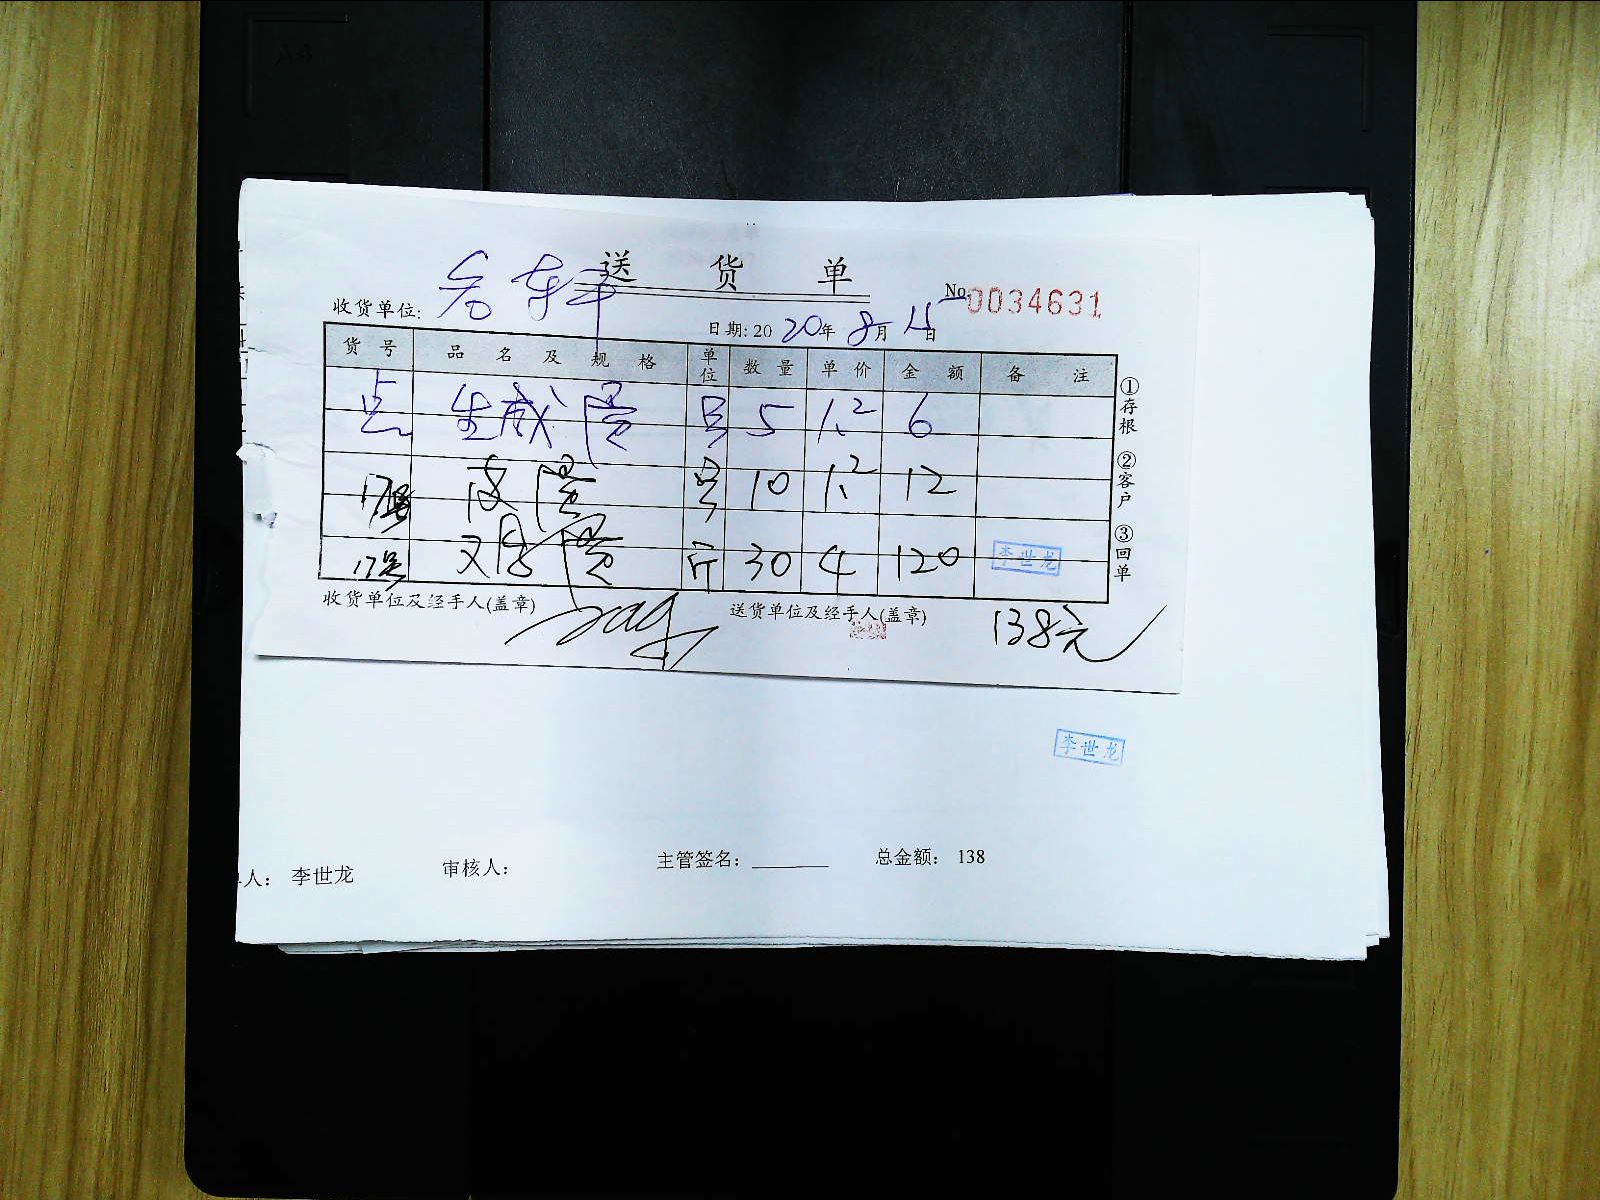 送货单
No 0034631
收货单位:
日期: 20 20年 8月 15日
货号 品名及规格 单位 数量 单价 金额 备注
生咸蛋 5 1.2 6
17号 皮蛋 10 1.2 12
17号 蛋 斤 30 4 120 李世龙
①存根 ②客户 ③回单
收货单位及经手人(盖章) 送货单位及经手人(盖章) 138元
李世龙
人: 李世龙 审核人: 主管签名: 总金额: 138